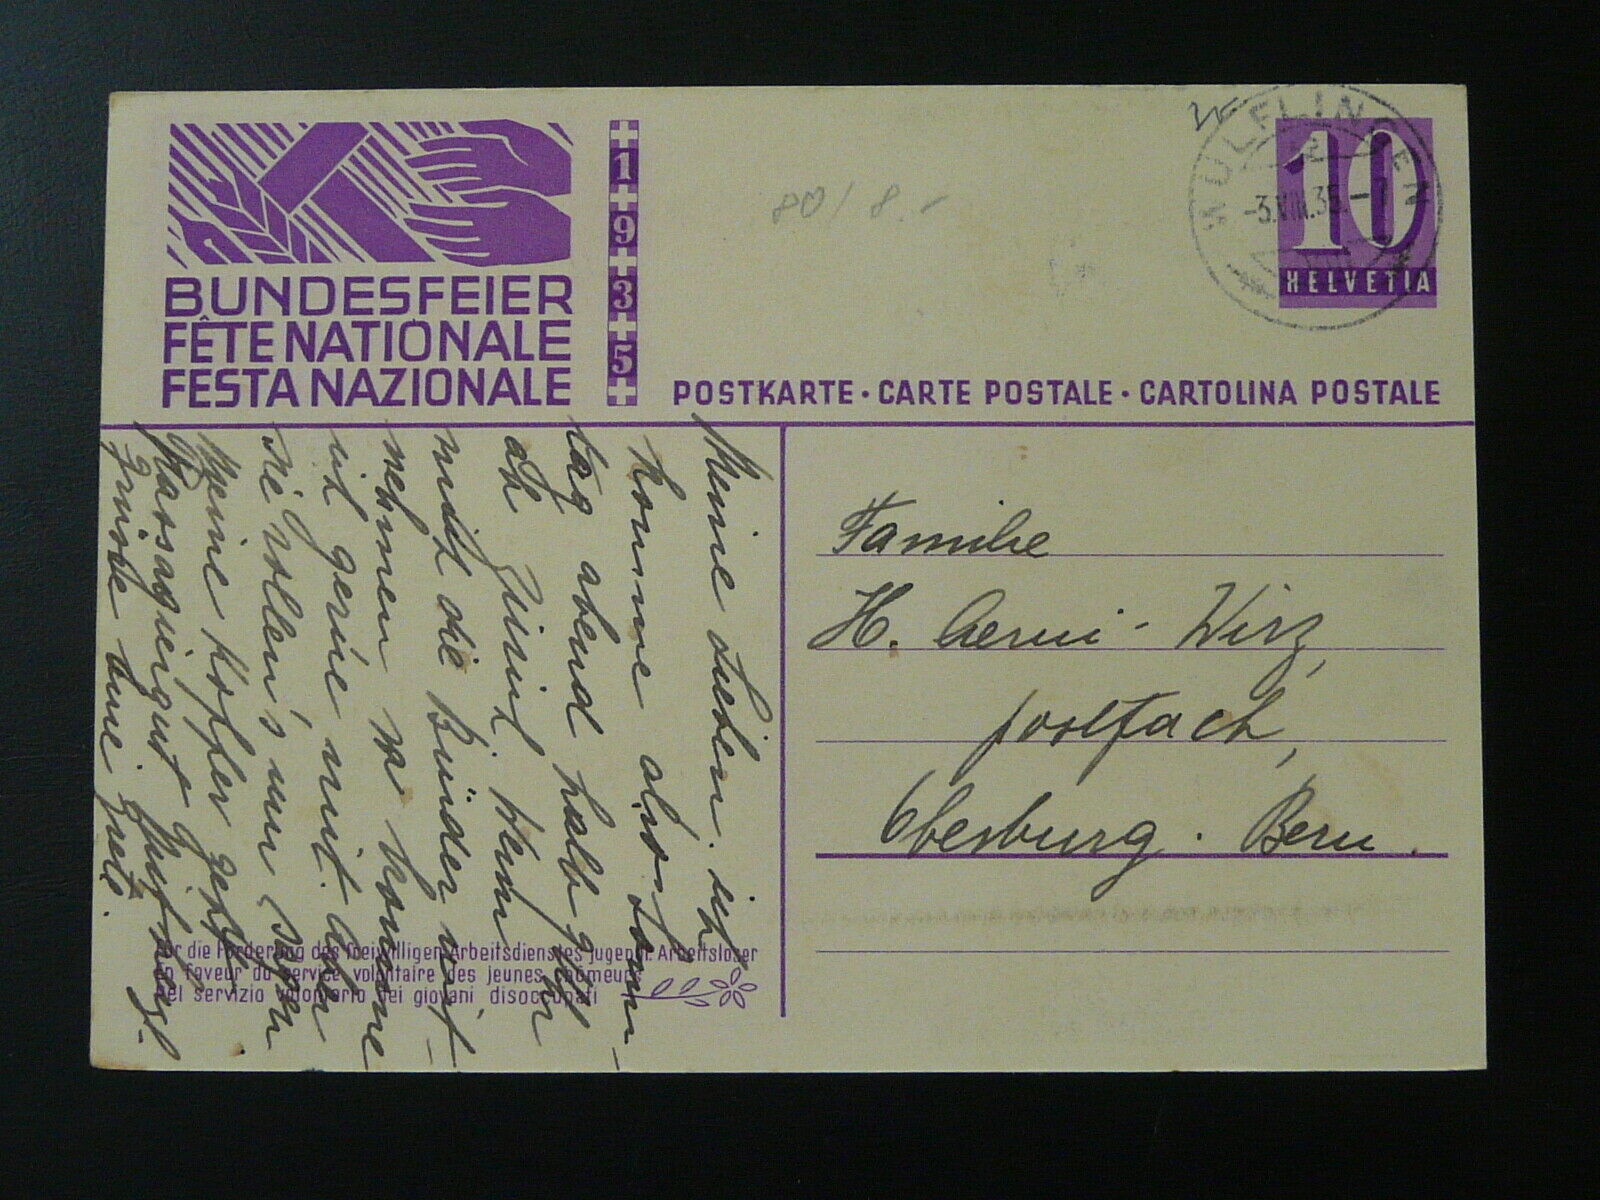 BUNDESFEIER
FÊTE NATIONALE
FESTA NAZIONALE
1935
80/8.-
WÜLFLINGEN
-3.VIII.35.-7
10
HELVETIA
POSTKARTE · CARTE POSTALE · CARTOLINA POSTALE
Meine Lieben. ich
komme also Sonn-
tag abend halb 9 Uhr
ab Zürich. kann
nicht die Bünder mit-
nehmen so komme
ich gerne mit. Aber
sie sollen's nun sagen
Meine Koffer geht
Passagiergut
grüsse
Für die Förderung des freiwilligen Arbeitsdienstes jugendl. Arbeitsloser
En faveur du service volontaire des jeunes chômeurs
Pel servizio volontario dei giovani disoccupati
Familie
H. Aerni-Wirz,
postfach,
Oberburg. Bern.